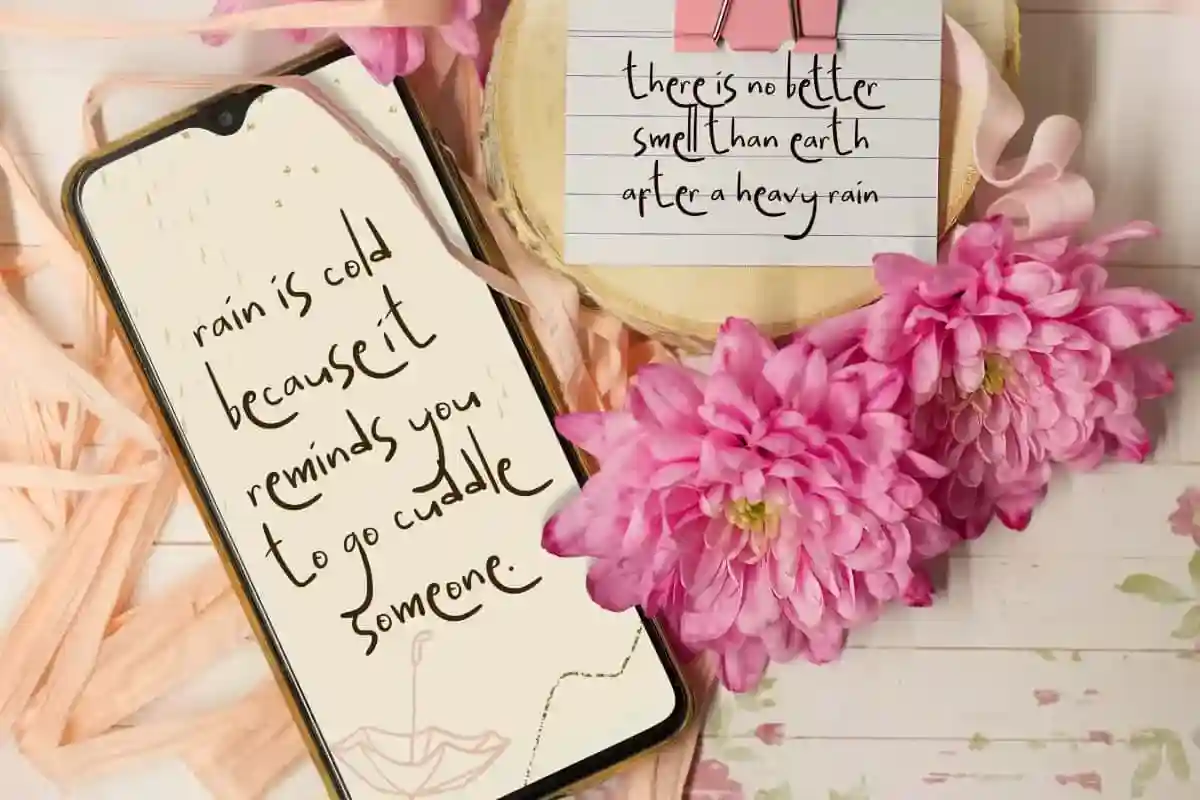 rain is cold
because it
reminds you
to go cuddle
someone.
there is no better
smell than earth
after a heavy rain